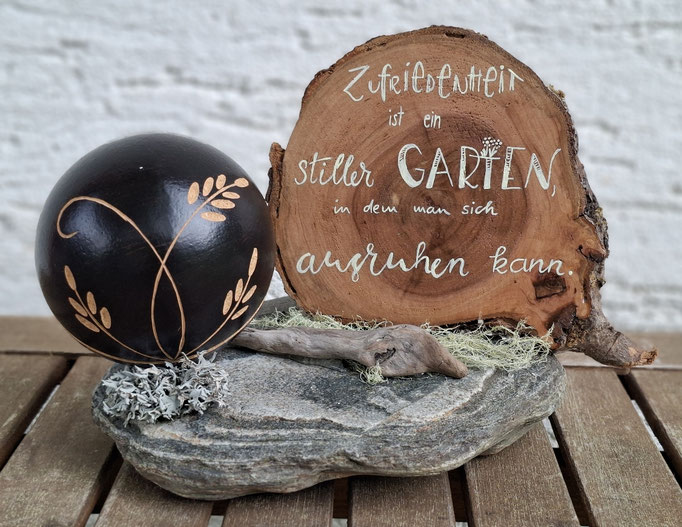 Zufriedenheit
ist ein
stiller GARTEN,
in dem man sich
ausruhen kann.